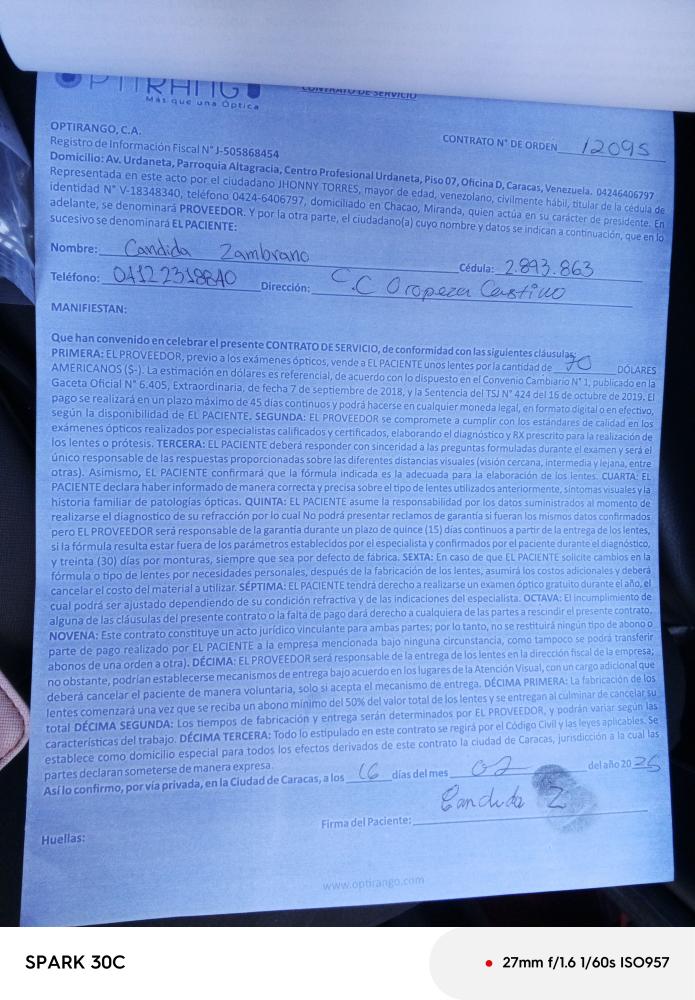 OPTIRANGO
Más que una Óptica
CONTRATO DE SERVICIO
OPTIRANGO, C.A.
CONTRATO N° DE ORDEN 12095
Registro de Información Fiscal N° J-505868454
Domicilio: Av. Urdaneta, Parroquia Altagracia, Centro Profesional Urdaneta, Piso 07, Oficina D, Caracas, Venezuela. 04246406797
Representada en este acto por el ciudadano JHONNY TORRES, mayor de edad, venezolano, civilmente hábil, titular de la cédula de
identidad N° V-18348340, teléfono 0424-6406797, domiciliado en Chacao, Miranda, quien actúa en su carácter de presidente. En
adelante, se denominará PROVEEDOR. Y por la otra parte, el ciudadano(a) cuyo nombre y datos se indican a continuación, que en lo
sucesivo se denominará EL PACIENTE:
Nombre: Candida Zambrano Cédula: 2.893.863
Teléfono: 04122318840 Dirección: C.C Oropeza Castillo
MANIFIESTAN:
Que han convenido en celebrar el presente CONTRATO DE SERVICIO, de conformidad con las siguientes cláusulas:
PRIMERA: EL PROVEEDOR, previo a los exámenes ópticos, vende a EL PACIENTE unos lentes por la cantidad de 70 DÓLARES
AMERICANOS ($-). La estimación en dólares es referencial, de acuerdo con lo dispuesto en el Convenio Cambiario N° 1, publicado en la
Gaceta Oficial N° 6.405, Extraordinaria, de fecha 7 de septiembre de 2018, y la Sentencia del TSJ N° 424 del 16 de octubre de 2019. El
pago se realizará en un plazo máximo de 45 días continuos y podrá hacerse en cualquier moneda legal, en formato digital o en efectivo,
según la disponibilidad de EL PACIENTE. SEGUNDA: EL PROVEEDOR se compromete a cumplir con los estándares de calidad en los
exámenes ópticos realizados por especialistas calificados y certificados, elaborando el diagnóstico y RX prescrito para la realización de
los lentes o prótesis. TERCERA: EL PACIENTE deberá responder con sinceridad a las preguntas formuladas durante el examen y será el
único responsable de las respuestas proporcionadas sobre las diferentes distancias visuales (visión cercana, intermedia y lejana, entre
otras). Asimismo, EL PACIENTE confirmará que la fórmula indicada es la adecuada para la elaboración de los lentes. CUARTA: EL
PACIENTE declara haber informado de manera correcta y precisa sobre el tipo de lentes utilizados anteriormente, síntomas visuales y la
historia familiar de patologías ópticas. QUINTA: EL PACIENTE asume la responsabilidad por los datos suministrados al momento de
realizarse el diagnostico de su refracción por lo cual No podrá presentar reclamos de garantía si fueran los mismos datos confirmados
pero EL PROVEEDOR será responsable de la garantía durante un plazo de quince (15) días continuos a partir de la entrega de los lentes,
si la fórmula resulta estar fuera de los parámetros establecidos por el especialista y confirmados por el paciente durante el diagnóstico,
y treinta (30) días por monturas, siempre que sea por defecto de fábrica. SEXTA: En caso de que EL PACIENTE solicite cambios en la
fórmula o tipo de lentes por necesidades personales, después de la fabricación de los lentes, asumirá los costos adicionales y deberá
cancelar el costo del material a utilizar. SÉPTIMA: EL PACIENTE tendrá derecho a realizarse un examen óptico gratuito durante el año, el
cual podrá ser ajustado dependiendo de su condición refractiva y de las indicaciones del especialista. OCTAVA: El incumplimiento de
alguna de las cláusulas del presente contrato o la falta de pago dará derecho a cualquiera de las partes a rescindir el presente contrato.
NOVENA: Este contrato constituye un acto jurídico vinculante para ambas partes; por lo tanto, no se restituirá ningún tipo de abono o
parte de pago realizado por EL PACIENTE a la empresa mencionada bajo ninguna circunstancia, como tampoco se podrá transferir
abonos de una orden a otra). DÉCIMA: EL PROVEEDOR será responsable de la entrega de los lentes en la dirección fiscal de la empresa;
no obstante, podrían establecerse mecanismos de entrega bajo acuerdo en los lugares de la Atención Visual, con un cargo adicional que
deberá cancelar el paciente de manera voluntaria, solo si acepta el mecanismo de entrega. DÉCIMA PRIMERA: La fabricación de los
lentes comenzará una vez que se reciba un abono mínimo del 50% del valor total de los lentes y se entregan al culminar de cancelar su
total DÉCIMA SEGUNDA: Los tiempos de fabricación y entrega serán determinados por EL PROVEEDOR, y podrán variar según las
características del trabajo. DÉCIMA TERCERA: Todo lo estipulado en este contrato se regirá por el Código Civil y las leyes aplicables. Se
establece como domicilio especial para todos los efectos derivados de este contrato la ciudad de Caracas, jurisdicción a la cual las
partes declaran someterse de manera expresa.
Así lo confirmo, por vía privada, en la Ciudad de Caracas, a los 16 días del mes 02 del año 20 26
Candida Z
Firma del Paciente:
Huellas:
www.optirango.com
SPARK 30C
27mm f/1.6 1/60s ISO957